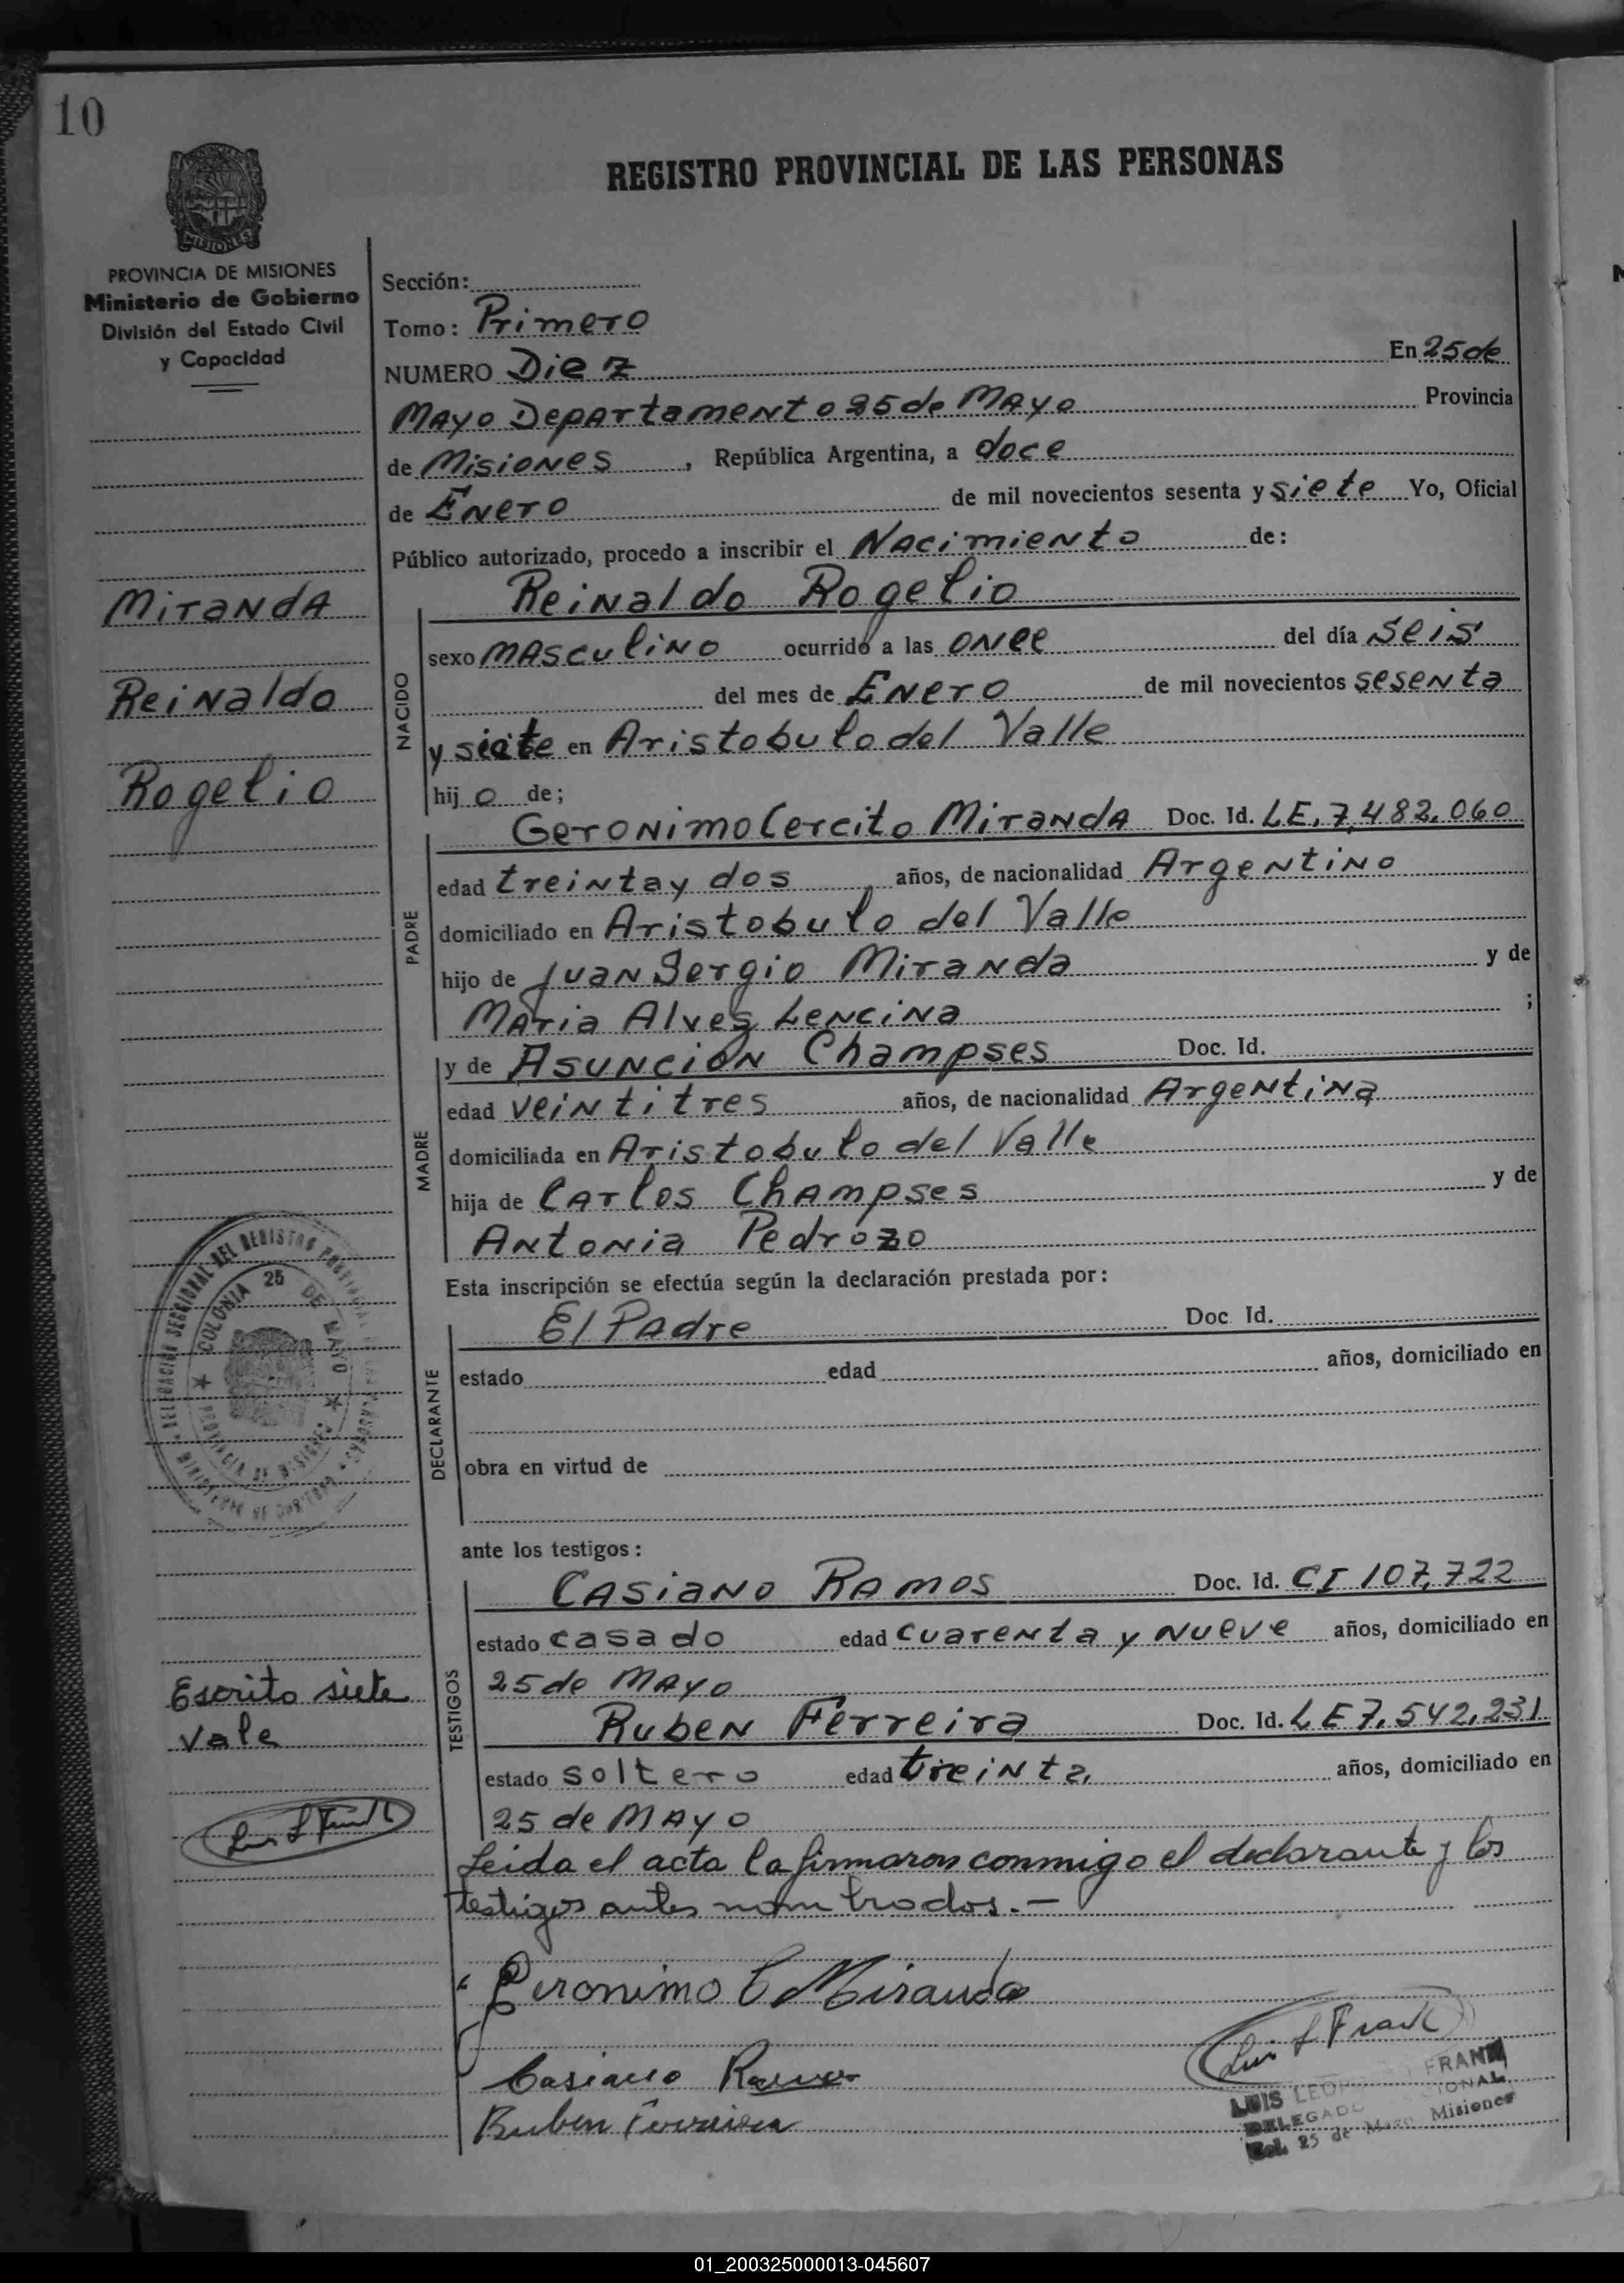 10
REGISTRO PROVINCIAL DE LAS PERSONAS
MISIONES
PROVINCIA DE MISIONES
Ministerio de Gobierno
División del Estado Civil
y Capacidad
Sección:
Tomo: Primero
NUMERO Diez En 25 de
Mayo Departamento 25 de Mayo Provincia
de Misiones, República Argentina, a doce
de Enero de mil novecientos sesenta y siete Yo, Oficial
Público autorizado, procedo a inscribir el Nacimiento de:
Miranda
Reinaldo
Rogelio
NACIDO
Reinaldo Rogelio
sexo masculino ocurrido a las once del día seis
del mes de Enero de mil novecientos sesenta
y siete en Aristobulo del Valle
hijo de;
PADRE
Geronimo Cercito Miranda Doc. Id. LE. 7,482,060
edad treinta y dos años, de nacionalidad Argentino
domiciliado en Aristobulo del Valle
hijo de Juan Sergio Miranda y de
Maria Alvez Lencina ;
MADRE
y de Asuncion Champses Doc. Id.
edad veintitres años, de nacionalidad Argentina
domiciliada en Aristobulo del Valle
hija de Carlos Champses y de
Antonia Pedrozo
Esta inscripción se efectúa según la declaración prestada por:
DECLARANTE
El Padre Doc. Id.
estado edad años, domiciliado en
obra en virtud de
ante los testigos:
TESTIGOS
Casiano Ramos Doc. Id. CI 107,722
estado casado edad cuarenta y nueve años, domiciliado en
25 de Mayo
Ruben Ferreira Doc. Id. LE 7,542,231
estado soltero edad treinta años, domiciliado en
25 de Mayo
Escrito siete
vale
Luis L Frank
Leida el acta la firmaron conmigo el declarante y los
testigos antes nombrados.-
Geronimo C Miranda
Casiano Ramos
Ruben Ferreira
Luis L Frank
LUIS FRANK
DELEGADO
Col. 25 de Mayo Misiones
DELEGACION SECCIONAL DEL REGISTRO PROVINCIAL DE LAS PERSONAS
COLONIA 25 DE MAYO
PROVINCIA DE MISIONES
MINISTERIO DE GOBIERNO
01_200325000013-045607